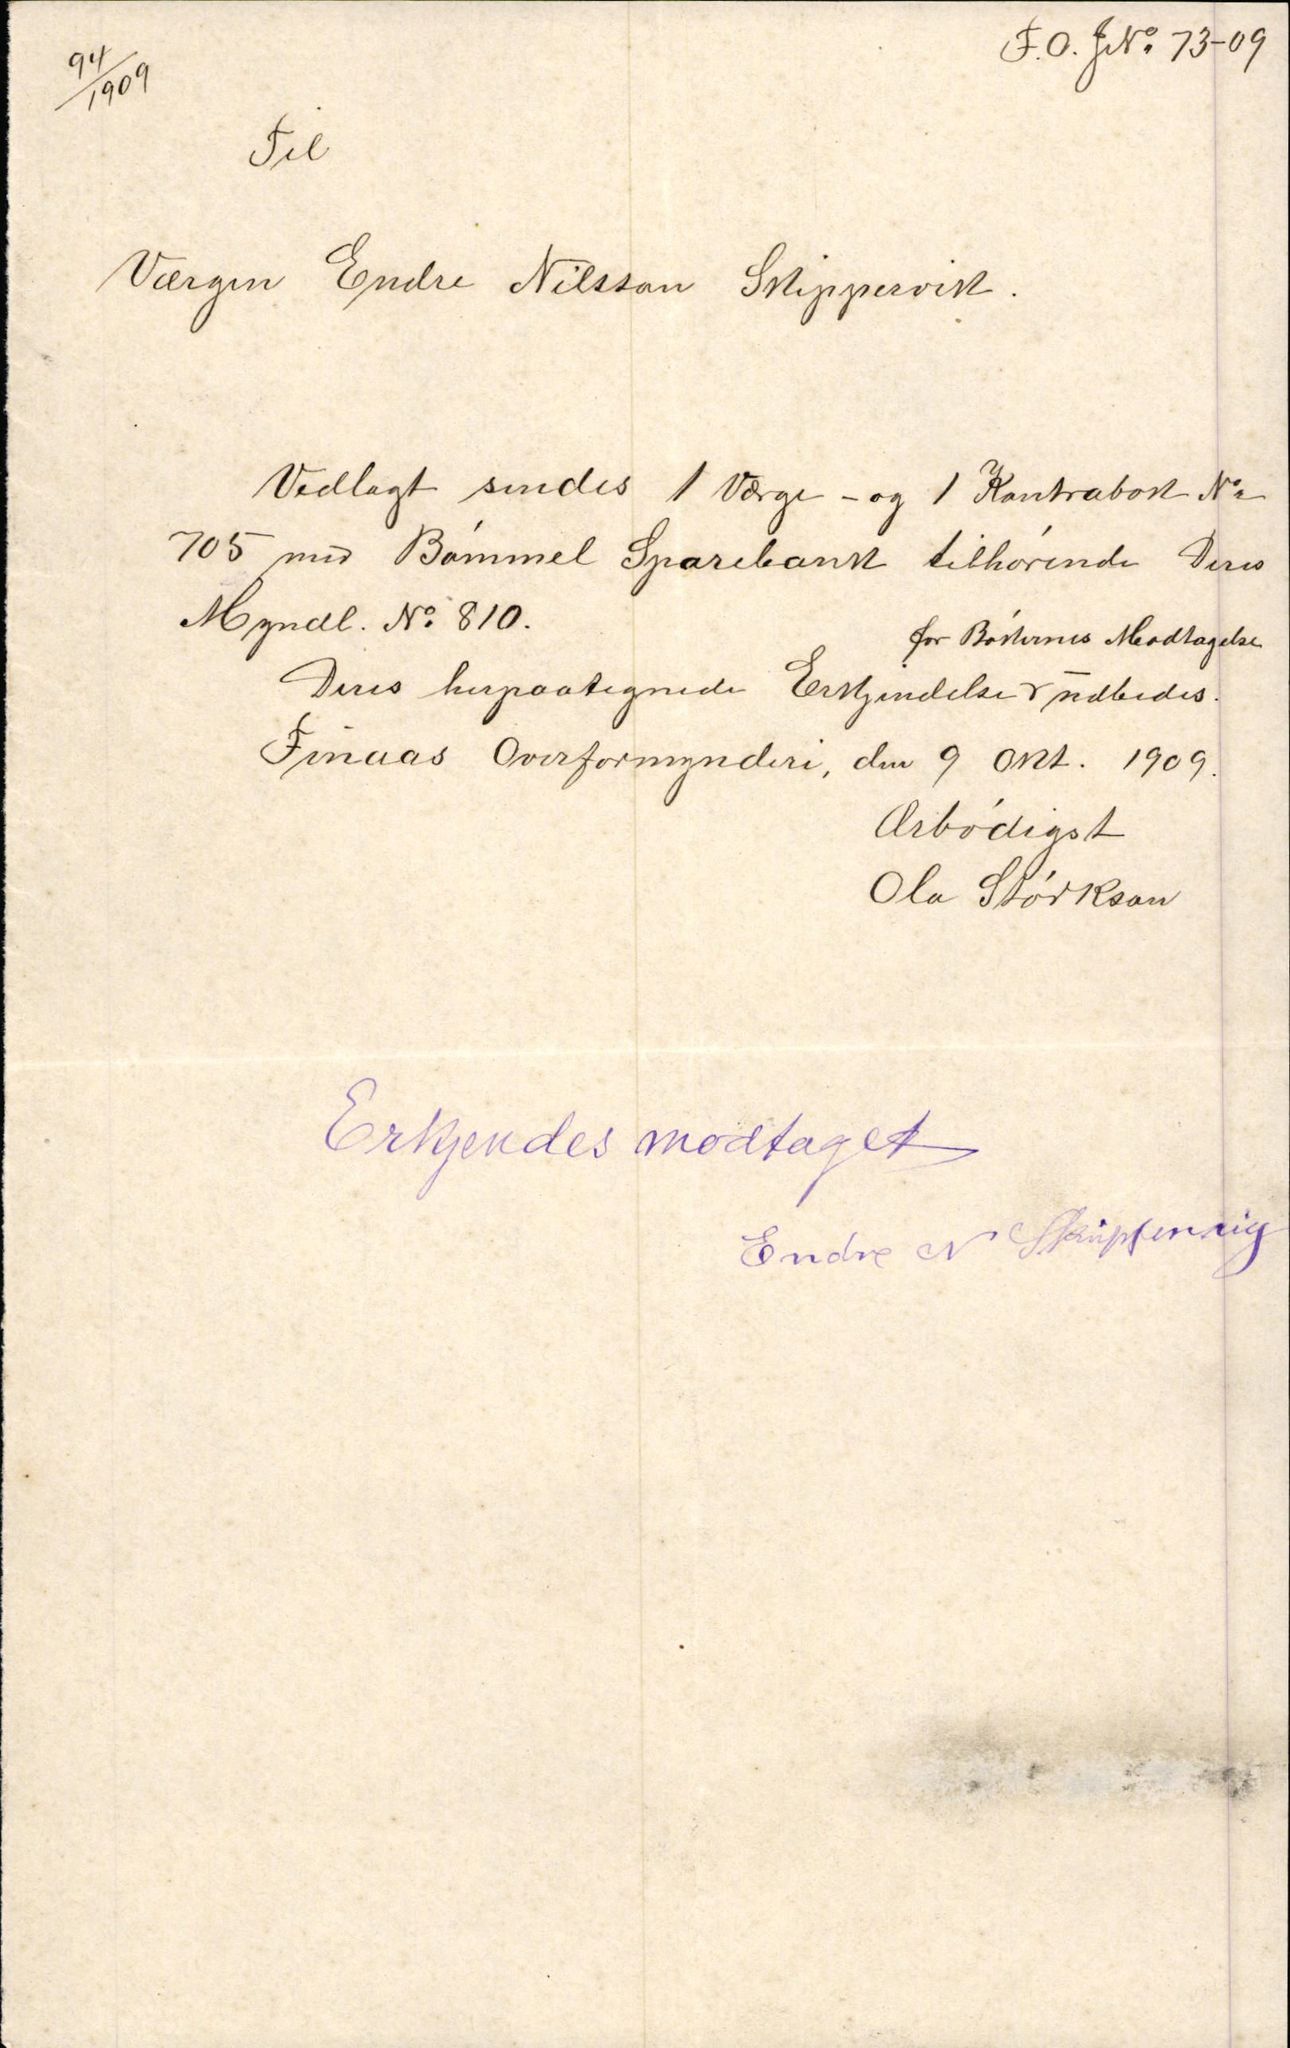 94/1909
F.O. J No. 73-09
Til
Værgen Endre Nilsson Skippervik.
Vedlagt sendes 1 Værge- og 1 Kontrabok No.
705 med Bömmel Sparebank tilhörende Deres
Myndl. No. 810.
for Bökernes Modtagelse
Deres herpaategnede Erkjendelse udbedes.
Finaas Overformynderi, den 9 Okt. 1909.
Ærbödigst
Ola Störkson
Erkjendes modtaget
Endre N